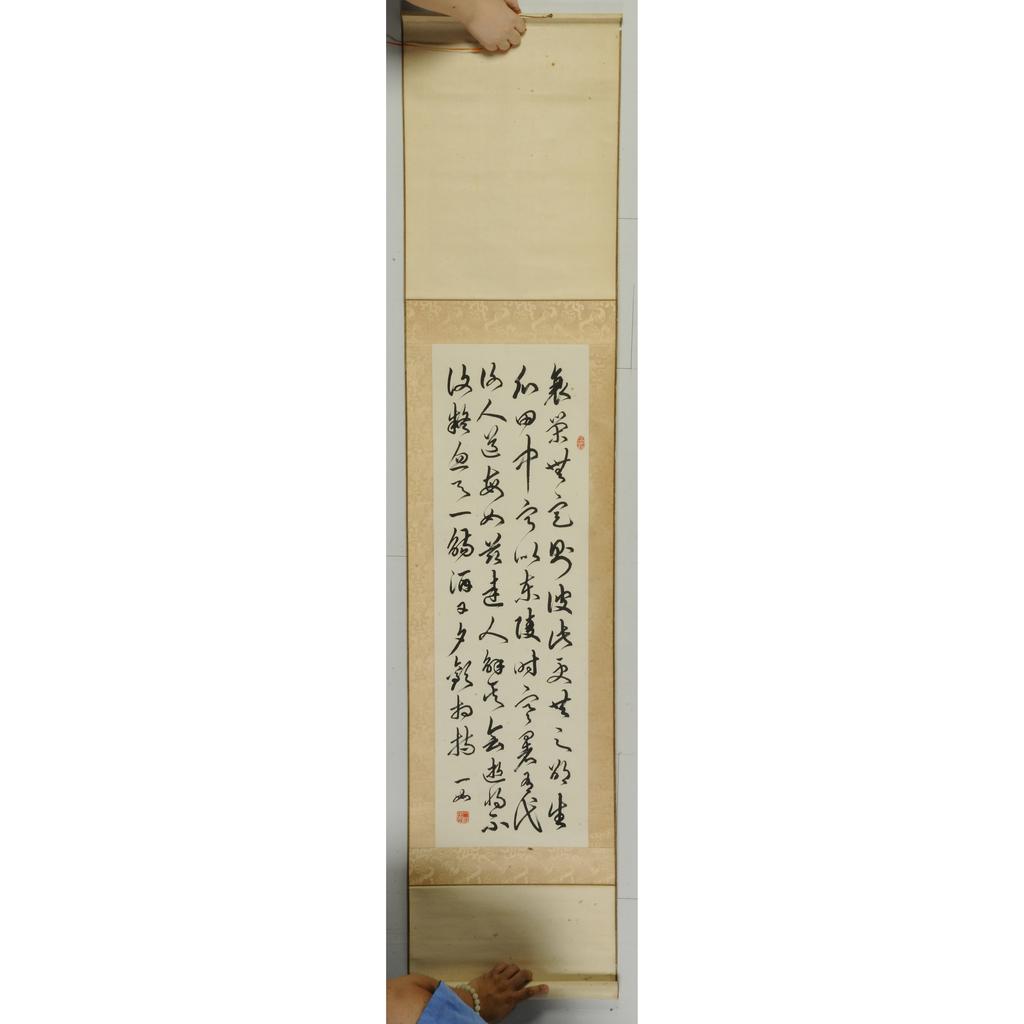 衰榮無定彼此更共之邵生
瓜田中寧似東陵時寒暑有代
謝人道每如茲達人解其會逝將不
復疑忽與一觴酒日夕歡相持
一如